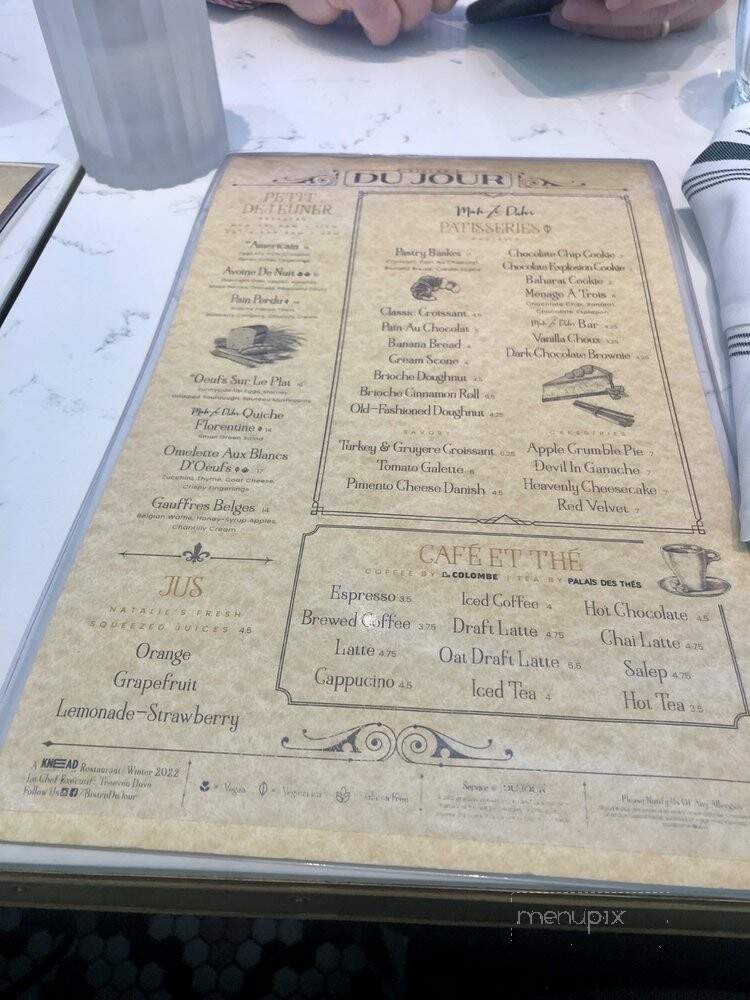 DU JOUR
PETIT
DEJEUNER
"American
Avoine De Nuit
Pain Perdu
"Oeufs Sur Le Plat
Sunnyside Up Eggs, Merguez,
Made by Dukes Quiche
Florentine 14
Small Green Salad
Omelette Aux Blancs
D'Oeufs 17
Zucchini, Thyme, Goat Cheese,
Crispy Fingerlings
Gauffres Belges 14
Belgian Waffle, Honey-Syrup Apples,
Chantilly Cream
JUS
NATALIE'S FRESH
SQUEEZED JUICES 4.5
Orange
Grapefruit
Lemonade-Strawberry
PATISSERIES
Pastry Basket
Classic Croissant 4.5
Pain Au Chocolat
Banana Bread
Cream Scone
Brioche Doughnut 4.5
Brioche Cinnamon Roll 6.5
Old-Fashioned Doughnut 4.25
SAVORY
Turkey & Gruyere Croissant 6.25
Tomato Galette 6
Pimento Cheese Danish 4.5
Chocolate Chip Cookie
Chocolate Explosion Cookie
Baharat Cookie
Menage A Trois
Chocolate Explosion
Bar 4.25
Vanilla Choux 3.25
Dark Chocolate Brownie 4.25
CAKES/PIES
Apple Crumble Pie 7
Devil In Ganache 7
Heavenly Cheesecake 7
Red Velvet 7
CAFÉ ET THÉ
COFFEE BY La COLOMBE | TEA BY PALAIS DES THÉS
Espresso 3.5
Brewed Coffee 3.75
Latte 4.75
Cappucino 4.5
Iced Coffee 4
Draft Latte 4.75
Oat Draft Latte 5.5
Iced Tea 4
Hot Chocolate 4.5
Chai Latte 4.75
Salep 4.75
Hot Tea 3.5
A KNEAD Restaurant/Winter 2022
Follow Us /BistroDuJour
= Vegan
= Vegetarian
= Gluten Free
Service @ DU JOUR
Please Notify Us Of Any Allergies
menupix